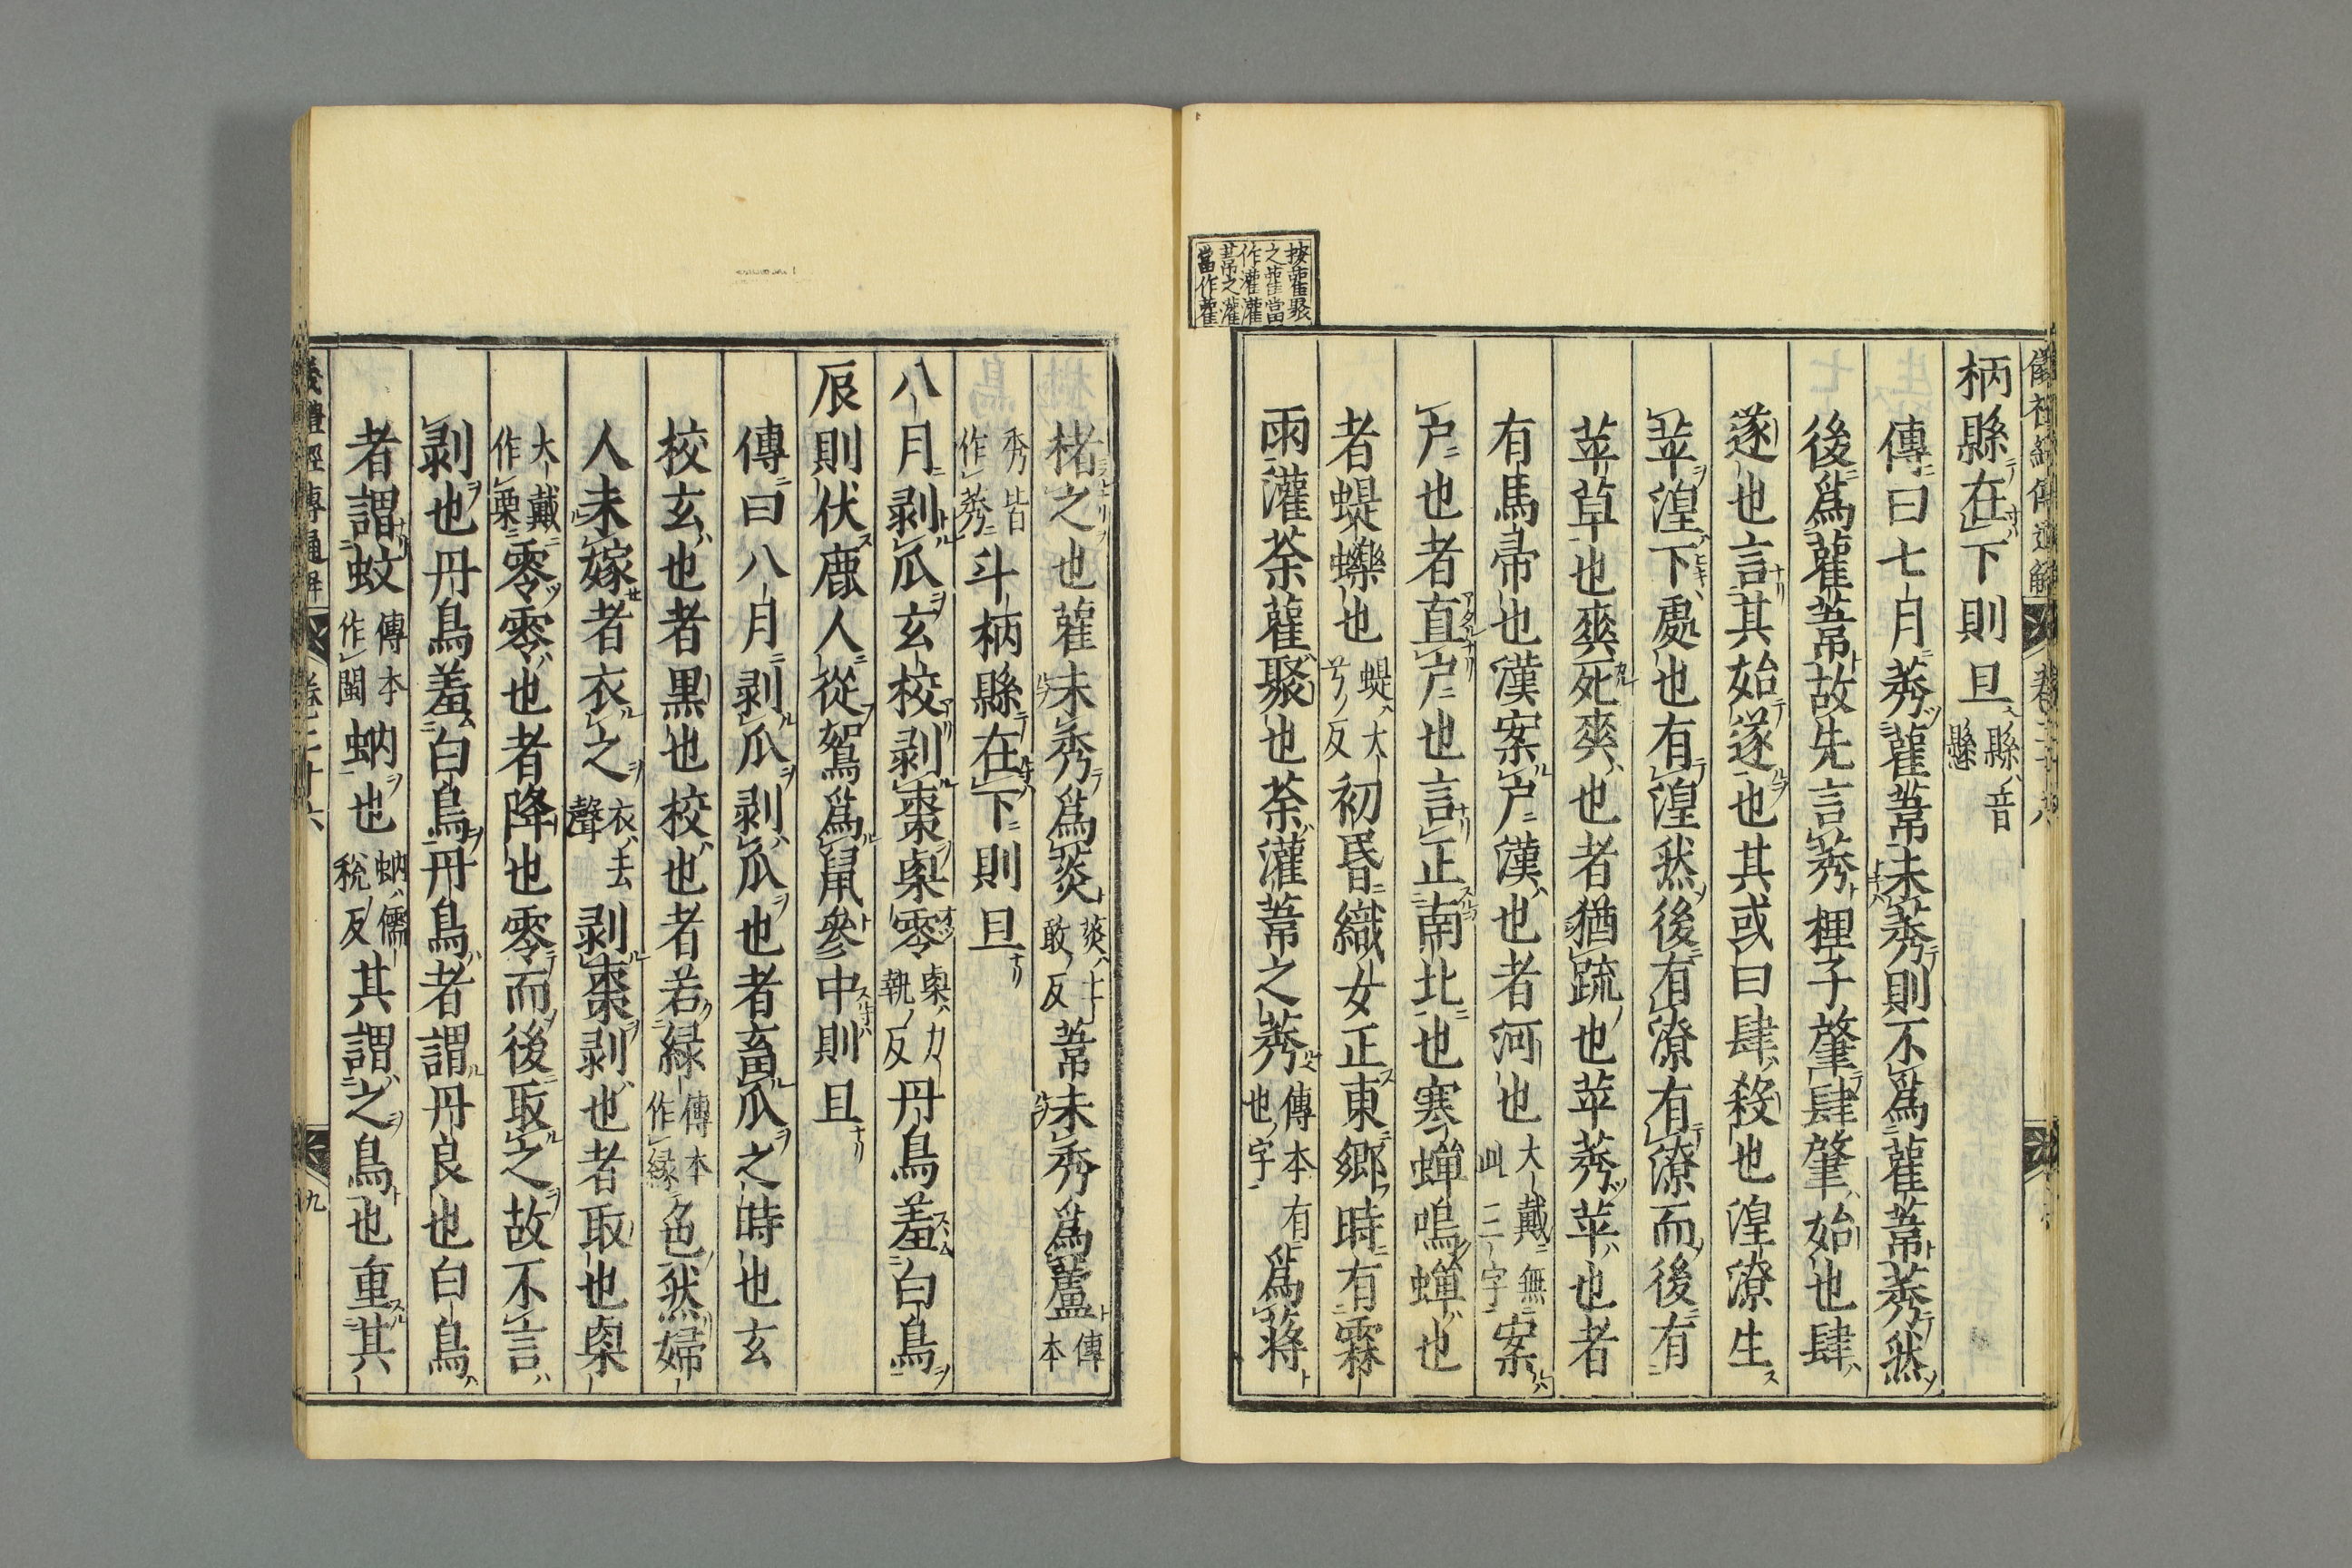 儀禮經傳通解
柄縣在下則旦縣音懸
傳曰七月莠雚葦未莠則不爲雚葦莠然
後爲雚葦故先言莠狸子肇肆肇始也肆
遂也言其始遂也其或曰肆殺也湟潦生
苹湟下處也有湟然後有潦有潦而後有
苹草也爽死爽也者猶疏也苹莠苹也者
有馬帚也漢案户漢也者河也大戴無此三字案
户也者直户也言正南北也寒蟬鳴蟬也
者蝭蠑也蝭大兮反初昏織女正東鄉時有霖
雨灌荼雚聚也荼灌葦之莠傳本有也字爲蔣
按雚聚
之雚當
作灌灌
葦之灌
當作雚
楮之也雚未秀爲菼菼土敢反葦未秀爲蘆傳本
秀皆作莠斗柄縣在下則旦
八月剥瓜玄校剥棗㮚零㮚力執反丹鳥羞白鳥
辰則伏鹿人從駕爲鼠參中則旦
傳曰八月剥瓜剥瓜也者畜瓜之時也玄
校玄也者黑也校也者若緑傳本作緣色然婦
人未嫁者衣之衣去聲剥棗剥也者取也㮚
大戴作栗零零也者降也零而後取之故不言
剥也丹鳥羞白鳥丹鳥者謂丹良也白鳥
者謂蚊傳本作閩蚋也蚋儒稅反其謂之鳥也重其
儀禮經傳通解 卷二十六 九